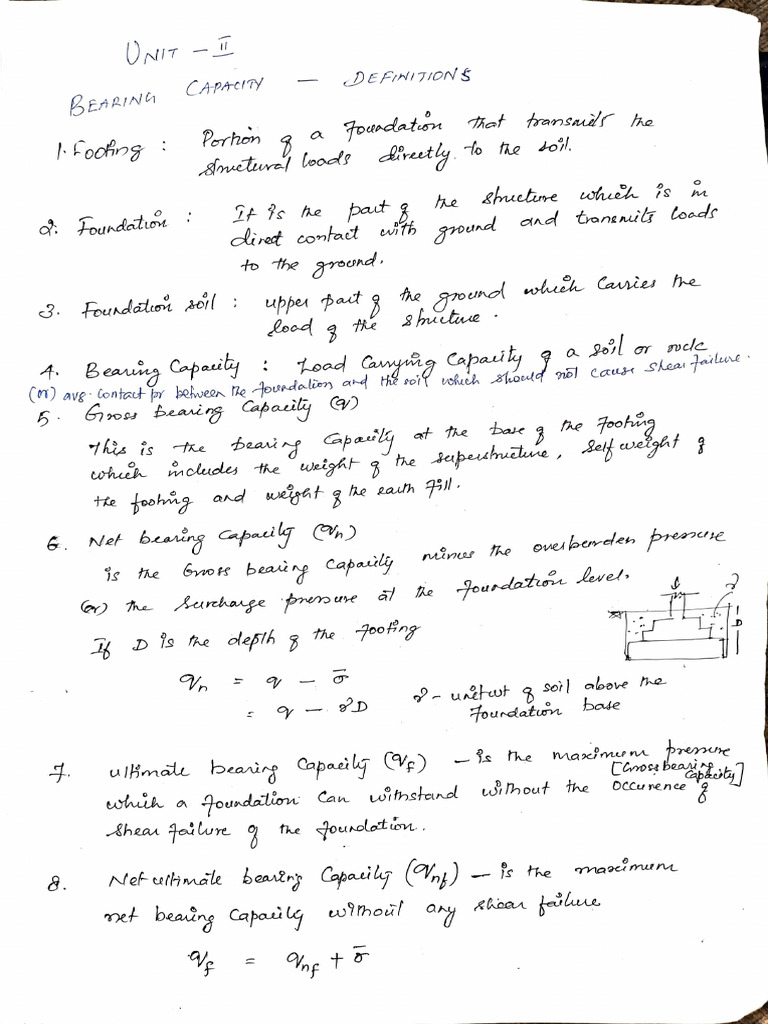 UNIT - II
BEARING CAPACITY - DEFINITIONS
1. Footing : Portion of a foundation that transmits the
structural loads directly to the soil.
2. Foundation : It is the part of the structure which is in
direct contact with ground and transmits loads
to the ground.
3. Foundation soil : upper part of the ground which carries the
load of the structure.
4. Bearing Capacity : Load Carrying Capacity of a soil or rock
(or) avg. contact pr between the foundation and the soil which should not cause shear failure.
5. Gross bearing Capacity (q)
This is the bearing Capacity at the base of the footing
which includes the weight of the superstructure, self weight of
the footing and weight of the earth fill.
6. Net bearing Capacity (qn)
is the Gross bearing Capacity minus the overburden pressure
(or) the surcharge pressure at the foundation level.
If D is the depth of the footing
γ
D
qn = q - σ̄
= q - γD
γ - unit wt of soil above the
foundation base
7. ultimate bearing Capacity (qf) - is the maximum pressure
[Gross bearing Capacity]
which a foundation can withstand without the occurence of
shear failure of the foundation.
8. Net ultimate bearing Capacity (qnf) - is the maximum
net bearing Capacity without any shear failure
qf = qnf + σ̄